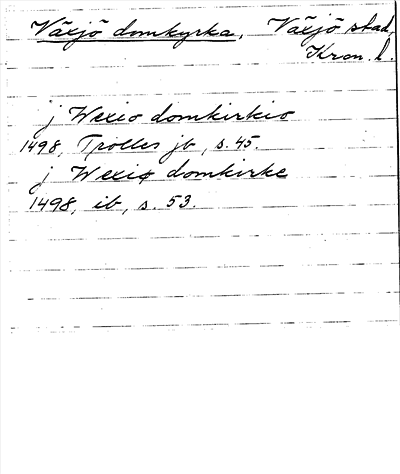 Växjö domkyrka, Växjö stad,
Kron. l.
j Wexio domkirkio
1498, Trolles jb, s. 45.
j Wexiø domkirke
1498, ib, s. 53.